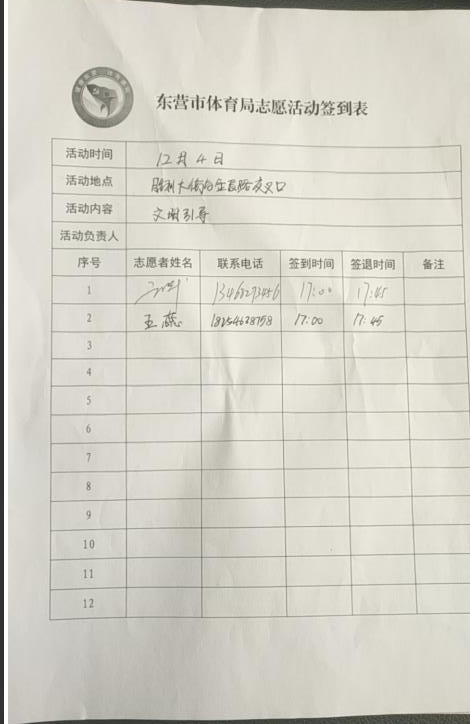 东营市体育局志愿活动签到表
活动时间 12月4日
活动地点 胜利大街 路交叉口
活动内容 文明引导
活动负责人
序号 志愿者姓名 联系电话 签到时间 签退时间 备注
1 17:00 17:45
2 王蕊 17:00 17:45
3
4
5
6
7
8
9
10
11
12